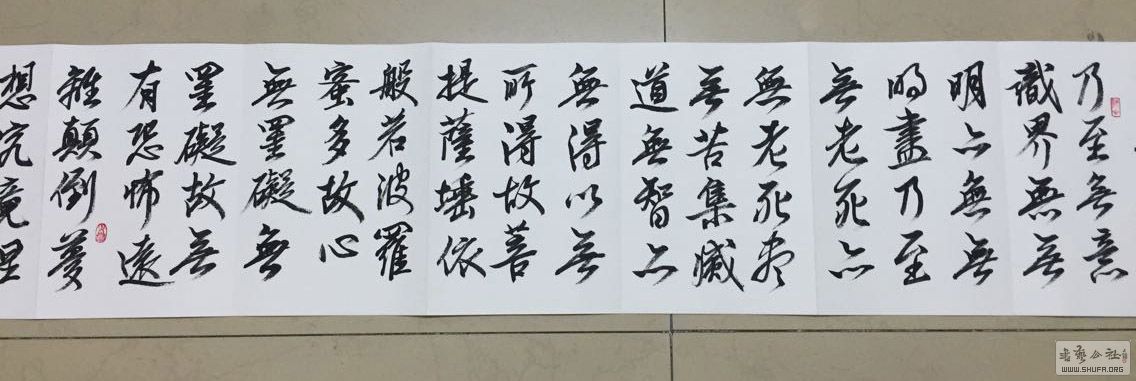 乃至無意
識界無無
明亦無無
明盡乃至
無老死亦
無老死盡
無苦集滅
道無智亦
無得以無
所得故菩
提薩埵依
般若波羅
蜜多故心
無罣礙無
罣礙故無
有恐怖遠
離顛倒夢
想究竟涅
書藝公社
WWW.SHUFA.ORG